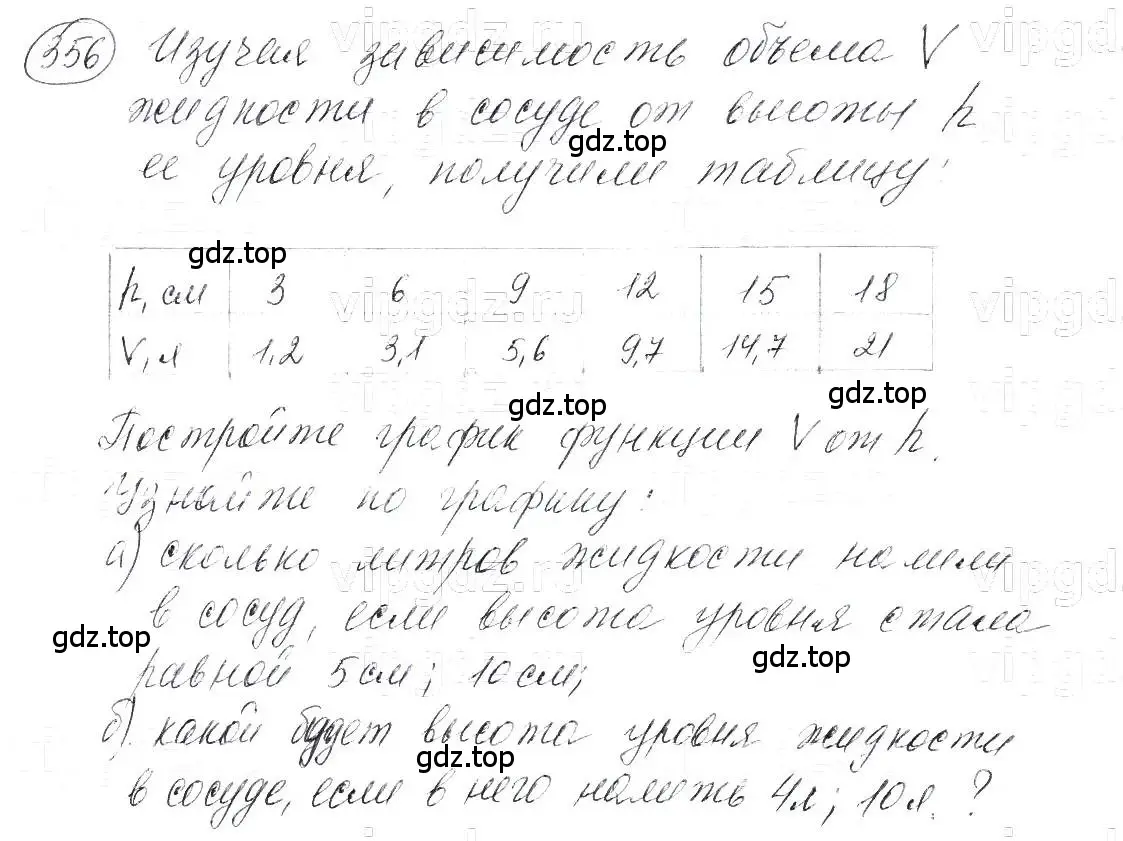 356 Изучая зависимость объема V
жидкости в сосуде от высоты h
ее уровня, получили таблицу:
h, см 3 6 9 12 15 18
V, л 1,2 3,1 5,6 9,7 14,7 21
Постройте график функции V от h.
Узнайте по графику:
а) сколько литров жидкости налили
в сосуд, если высота уровня стала
равной 5 см; 10 см;
б) какой будет высота уровня жидкости
в сосуде, если в него налить 4 л; 10 л.?
gdz.top
gdz.top
gdz.top
gdz.top
gdz.top
gdz.top
gdz.top
vipgdz.ru
vipgdz.ru
vipgdz.ru
vipgdz.ru